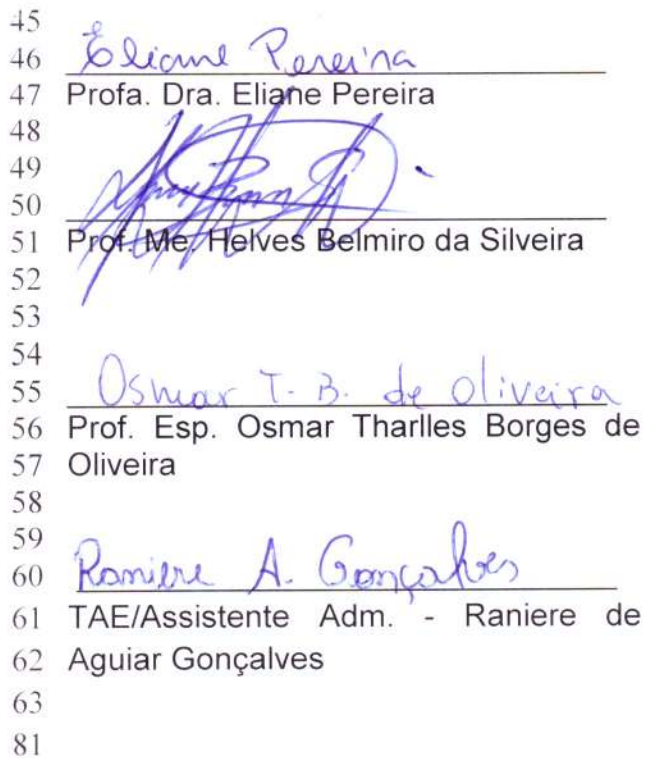 45
46 Eliane Pereira
47 Profa. Dra. Eliane Pereira
48
49
50
51 Prof. Me. Helves Belmiro da Silveira
52
53
54
55 Osmar T. B. de Oliveira
56 Prof. Esp. Osmar Tharlles Borges de
57 Oliveira
58
59
60 Raniere A. Gonçalves
61 TAE/Assistente Adm. - Raniere de
62 Aguiar Gonçalves
63
81